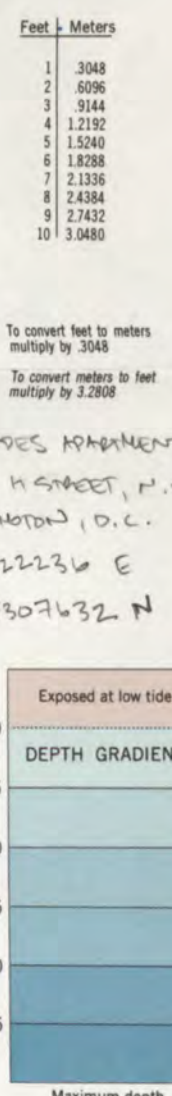 Feet Meters
1 .3048
2 .6096
3 .9144
4 1.2192
5 1.5240
6 1.8288
7 2.1336
8 2.4384
9 2.7432
10 3.0480
To convert feet to meters
multiply by .3048
To convert meters to feet
multiply by 3.2808
DES APARTMEN
H STREET, N.
NGTON, D.C.
22236 E
307632 N
Exposed at low tide
DEPTH GRADIEN
Maximum depth